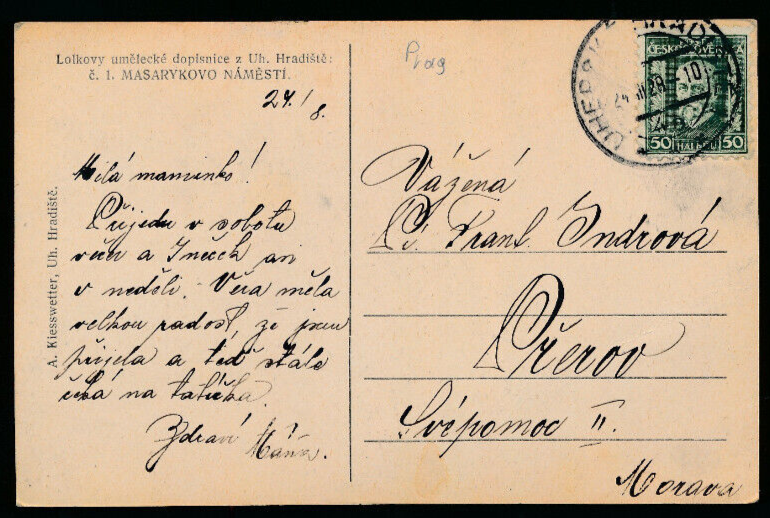 Lolkovy umělecké dopisnice z Uh. Hradiště:
č. 1. MASARYKOVO NÁMĚSTÍ.
24./8.
Milá maminko!
Přijedu v sobotu
večer a
v neděli. Věra měla
velkou radost že jsem
přijela a teď stále
čeká na tatíčka.
Zdraví
Máňa.
A. Kiesswetter, Uh. Hradiště.
Prag
UHERSKÉ HRAD
ČESKOSLOVENSKÁ
50 HALÉŘŮ 50
Vážená
Pí. Frant. Indrová
Přerov
Svépomoc II.
Morava